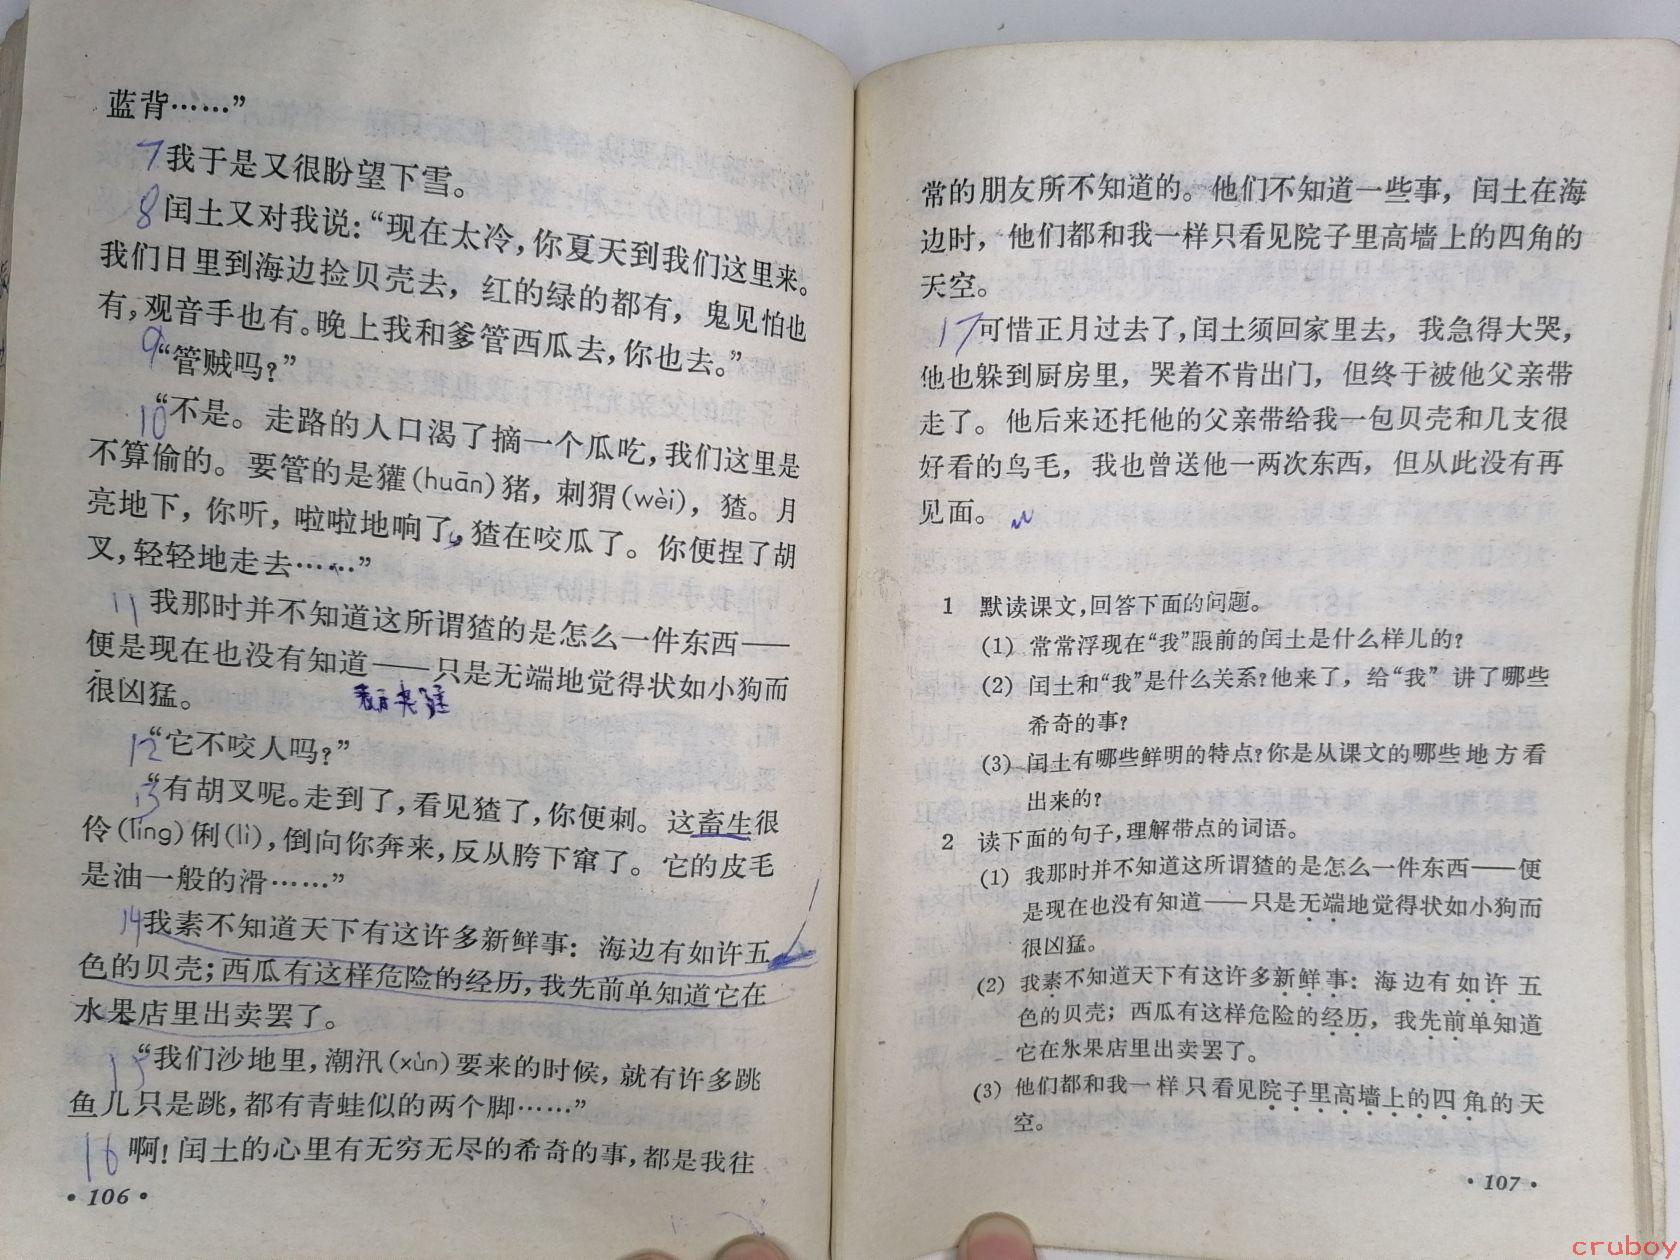 蓝背……”
7 我于是又很盼望下雪。
8 闰土又对我说：“现在太冷，你夏天到我们这里来。
我们日里到海边捡贝壳去，红的绿的都有，鬼见怕也
有，观音手也有。晚上我和爹管西瓜去，你也去。”
9 “管贼吗？”
10 “不是。走路的人口渴了摘一个瓜吃，我们这里是
不算偷的。要管的是獾(huān)猪，刺猬(wèi)，猹。月
亮地下，你听，啦啦地响了，猹在咬瓜了。你便捏了胡
叉，轻轻地走去……”
11 我那时并不知道这所谓猹的是怎么一件东西——
便是现在也没有知道——只是无端地觉得状如小狗而
很凶猛。
12 “它不咬人吗？”
13 “有胡叉呢。走到了，看见猹了，你便刺。这畜生很
伶(líng)俐(lì)，倒向你奔来，反从胯下窜了。它的皮毛
是油一般的滑……”
14 我素不知道天下有这许多新鲜事：海边有如许五
色的贝壳；西瓜有这样危险的经历，我先前单知道它在
水果店里出卖罢了。
15 “我们沙地里，潮汛(xùn)要来的时候，就有许多跳
鱼儿只是跳，都有青蛙似的两个脚……”
16 啊！闰土的心里有无穷无尽的希奇的事，都是我往
·106·
常的朋友所不知道的。他们不知道一些事，闰土在海
边时，他们都和我一样只看见院子里高墙上的四角的
天空。
17 可惜正月过去了，闰土须回家里去，我急得大哭，
他也躲到厨房里，哭着不肯出门，但终于被他父亲带
走了。他后来还托他的父亲带给我一包贝壳和几支很
好看的鸟毛，我也曾送他一两次东西，但从此没有再
见面。
1 默读课文，回答下面的问题。
(1) 常常浮现在“我”眼前的闰土是什么样儿的？
(2) 闰土和“我”是什么关系？他来了，给“我”讲了哪些
希奇的事？
(3) 闰土有哪些鲜明的特点？你是从课文的哪些地方看
出来的？
2 读下面的句子，理解带点的词语。
(1) 我那时并不知道这所谓猹的是怎么一件东西——便
是现在也没有知道——只是无端地觉得状如小狗而
很凶猛。
(2) 我素不知道天下有这许多新鲜事：海边有如许五
色的贝壳；西瓜有这样危险的经历，我先前单知道
它在水果店里出卖罢了。
(3) 他们都和我一样只看见院子里高墙上的四角的天
空。
·107·
cruboy